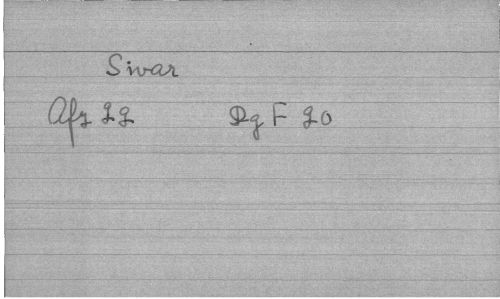 Sivar
Afz 22 DgF 20